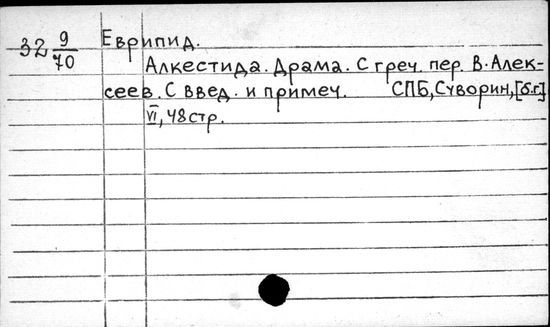 32 9/70 Еврипид.
Алкестида. Драма. С греч. пер. В. Алек-
сеев. С введ. и примеч. СПБ, Суворин, [б.г.]
VI, 48 стр.